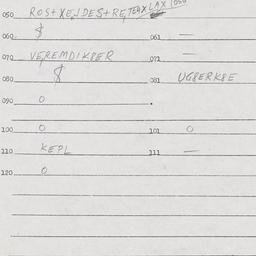 050 ROS+XEJDES+RE,TEAXLAX
060 $ 061 —
070 VEREMDIK8ER 071 —
080 $ 081 UG8ERK8E
090 0
100 0 101 0
110 KEPL 111 —
120 0